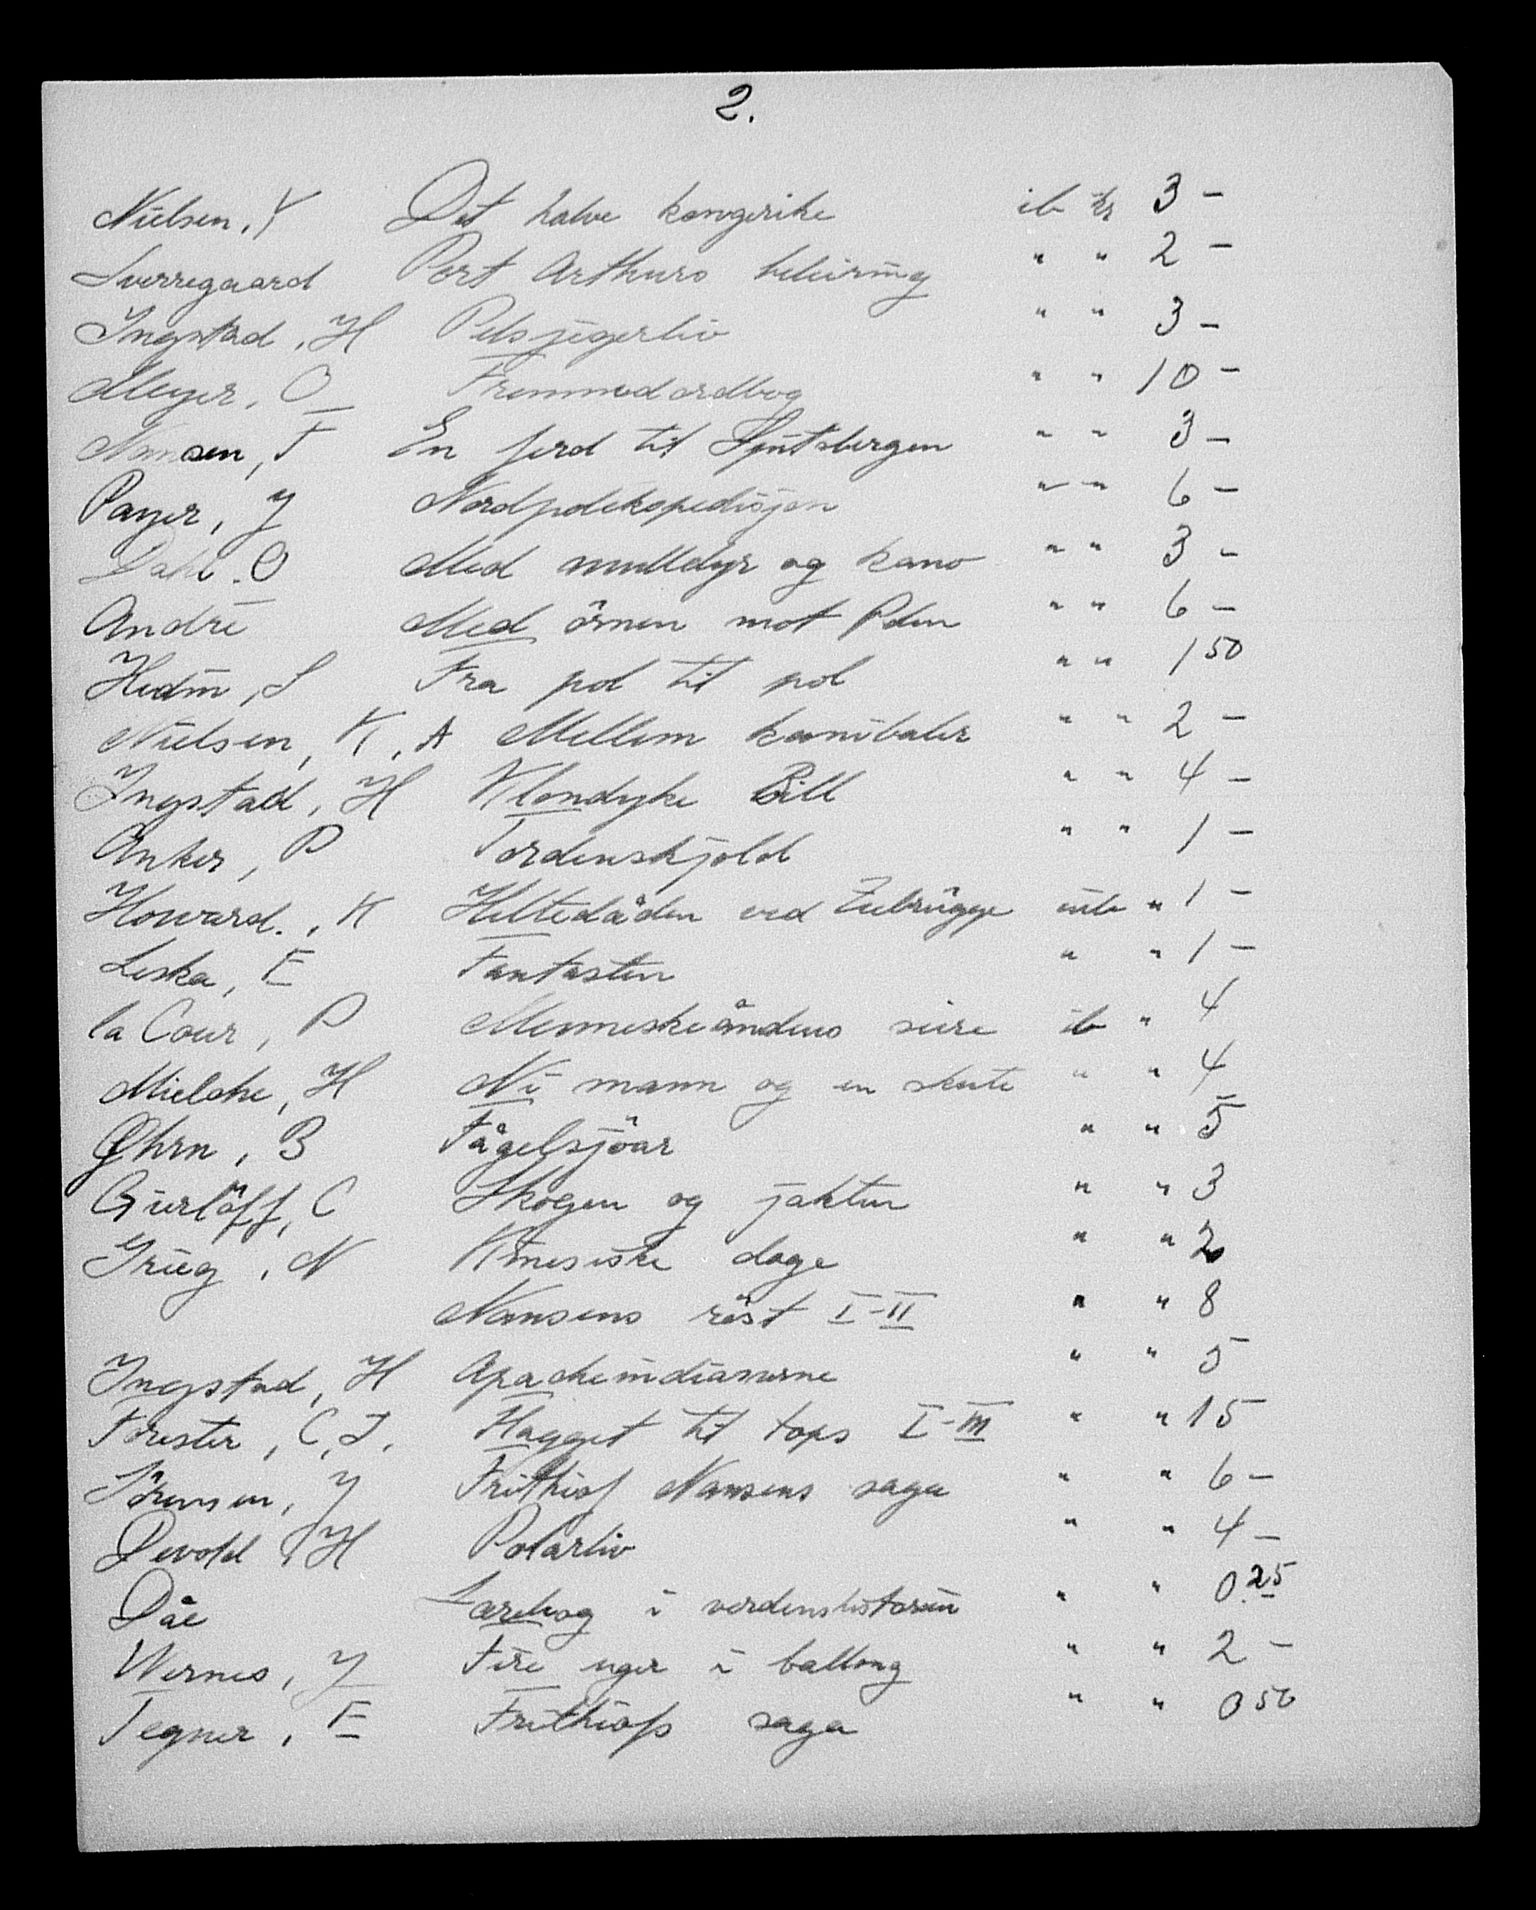 2.
Nielsen, Y Det halve kongerike ib kr 3 -
Sverregaard Port Arthurs beleiring " " 2 -
Ingstad, H Pelsjegerliv " " 3 -
Meyer, O Fremmedordbog " " 10 -
Nansen, F En ferd til Spitsbergen " " 3 -
Payer, J Nordpolekspedisjon " " 6 -
Dahl. O Med mulldyr og kano " " 3 -
André Med örnen mot Polen " " 6 -
Hedin, S Fra pol til pol " " 1 50
Nielsen, K, A Mellem kanibaler " " 2 -
Ingstad, H Klondyke Bill " " 4 -
Anker, P Tordenskjold " " 1 -
Howard., K Heltedåden ved Zeebrügge uib " 1 -
Leska, E Fantasten " " 1 -
la Cour, P Menneskeåndens seire ib " 4
Mielche, H Ni mann og en skute " " 4
Öhrn, B Fågelsjöar " " 5
Gierlöff, C Skogen og jakten " " 3
Grieg, N Kinesiske dage " " 2
Nansens röst I-II " " 8
Ingstad, H Apacheindianerne " " 5
Forester, C, S. Flagget til tops I-III " " 15
Sörensen, J Frithiof Nansens saga " " 6 -
Devold, H Polarliv " " 4 -
Dåe Lærebog i verdenshistorien " " 0.25
Wernes, J Fire uger i ballong " " 2 -
Tegner, E Frithiofs saga " " 0 50